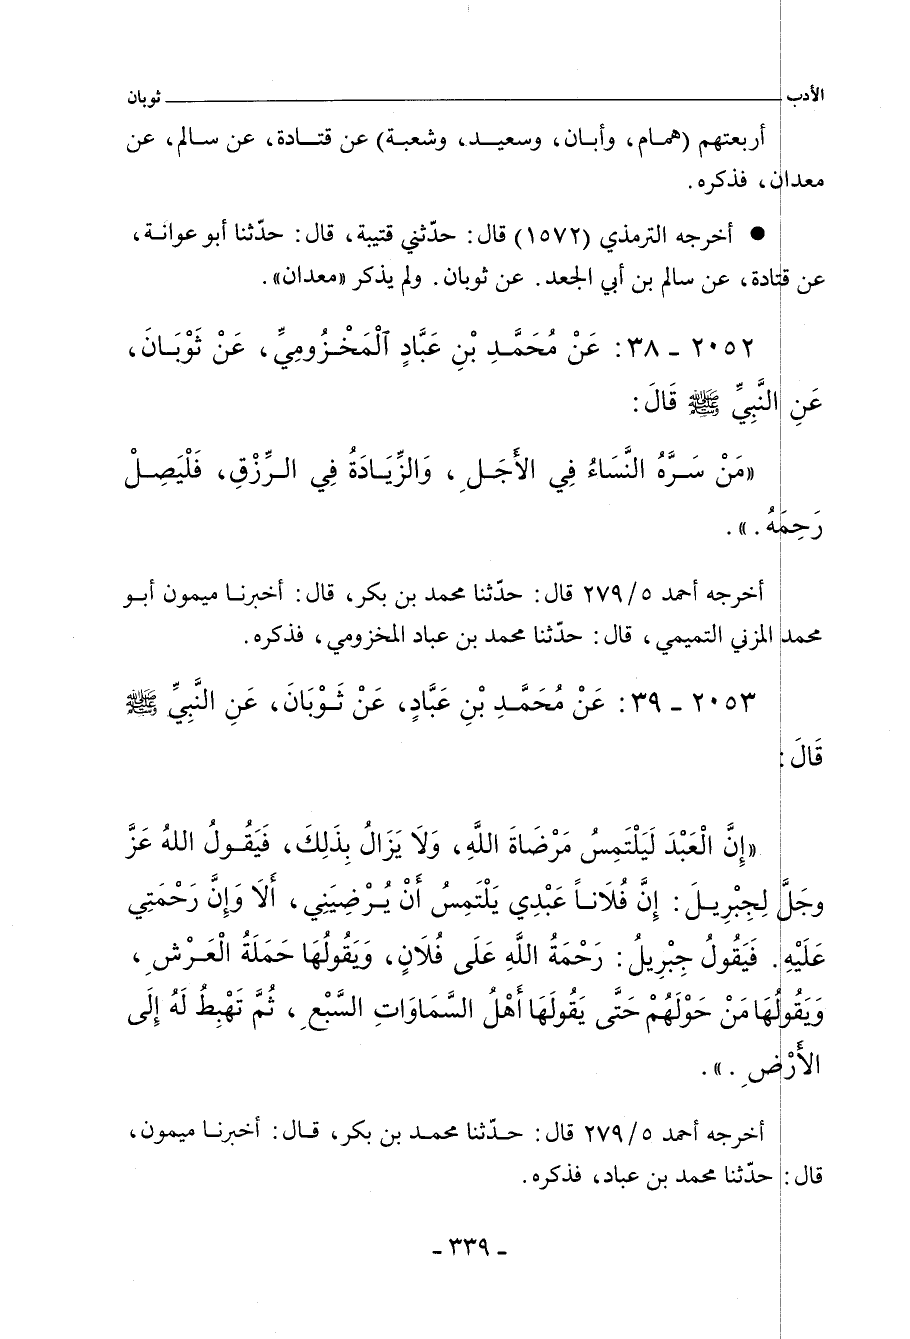 الأدب ثوبان
أربعتهم (همام، وأبان، وسعيـد، وشعبة) عن قتـادة، عن سالم، عن
معدان، فذكره.
● أخرجه الترمذي (١٥٧٢) قال: حدّثني قتيبة، قال: حدّثنا أبو عوانـة،
عن قتادة، عن سالم بن أبي الجعد. عن ثوبان. ولم يذكر «معدان».
٢٠٥٢ ـ ٣٨: عَنْ مُحَمَّـدِ بْنِ عَبَّادٍ ٱلْمَخْـزُومِيِّ، عَنْ ثَوْبَـانَ،
عَنِ النَّبِيِّ ﷺ قَالَ:
«مَنْ سَـرَّهُ النَّسَاءُ فِي الأَجَلِ، وَالزِّيَـادَةُ فِي الـرِّزْقِ، فَلْيَصِـلْ
رَحِمَهُ.».
أخرجه أحمد ٥/٢٧٩ قال: حدّثنا محمد بن بكر، قال: أخبرنـا ميمون أبـو
محمد المزني التميمي، قال: حدّثنا محمد بن عباد المخزومي، فذكره.
٢٠٥٣ ـ ٣٩: عَنْ مُحَمَّـدِ بْنِ عَبَّادٍ، عَنْ ثَـوْبَانَ، عَنِ النَّبِيِّ ﷺ
قَالَ:
«إِنَّ الْعَبْدَ لَيَلْتَمِسُ مَرْضَاةَ اللَّهِ، وَلَا يَزَالُ بِذَلِكَ، فَيَقُـولُ اللهُ عَزَّ
وجَلَّ لِجِبْرِيـلَ: إِنَّ فُلَانـاً عَبْدِي يَلْتَمِسُ أَنْ يُـرْضِيَنِي، أَلَا وَإِنَّ رَحْمَتِي
عَلَيْهِ. فَيَقُولُ جِبْرِيلُ: رَحْمَةُ اللَّهِ عَلَى فُلَانٍ، وَيَقُولُهَا حَمَلَةُ الْعَـرْشِ،
وَيَقُولُهَا مَنْ حَوْلَهُمْ حَتَّى يَقُولَهَا أَهْلُ السَّمَاوَاتِ السَّبْعِ، ثُمَّ تَهْبِطُ لَهُ إِلَى
الأَرْضِ.».
أخرجه أحمد ٥/٢٧٩ قال: حـدّثنا محمـد بن بكر، قـال: أخبرنـا ميمون،
قال: حدّثنا محمد بن عباد، فذكره.
ـ ٣٣٩ ـ